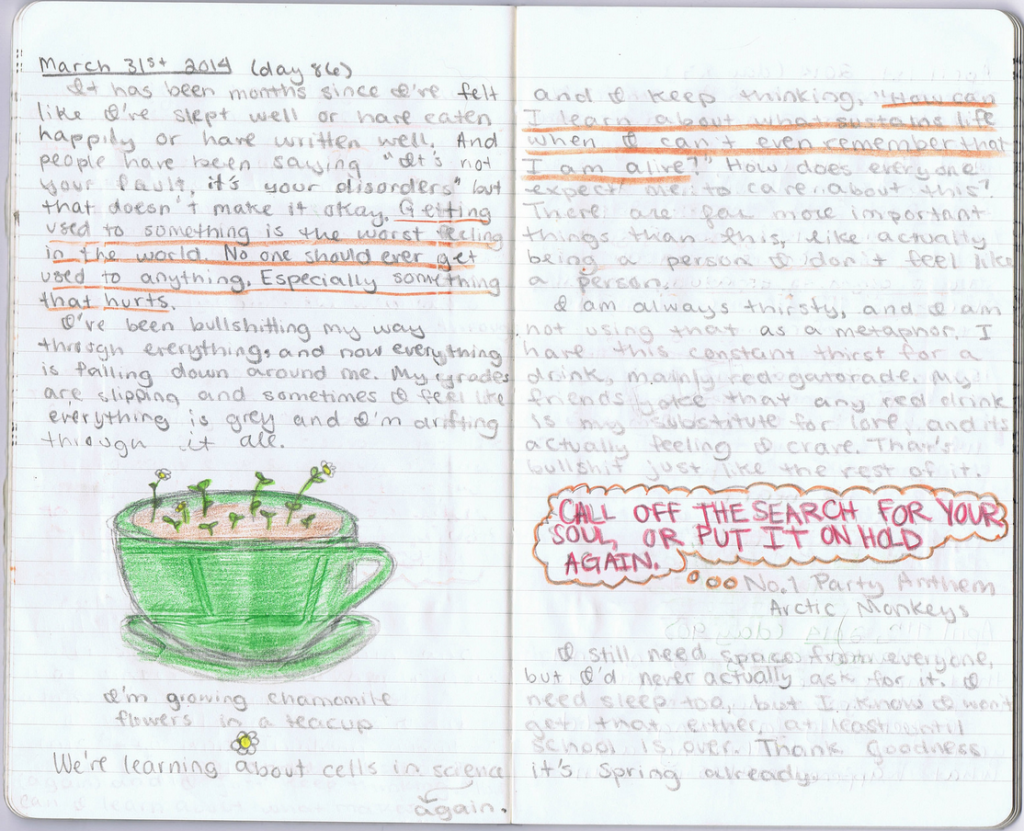 March 31st 2014 (day 86)
It has been months since I've felt
like I've slept well or have eaten
happily or have written well. And
people have been saying "It's not
your fault, it's your disorders" but
that doesn't make it okay. Getting
used to something is the worst feeling
in the world. No one should ever get
used to anything. Especially something
that hurts.
I've been bullshitting my way
through everything, and now everything
is falling down around me. My grades
are slipping and sometimes I feel like
everything is grey and I'm drifting
through it all.
I'm growing chamomile
flowers in a teacup
We're learning about cells in science
again.
and I keep thinking, "How can
I learn about what sustains life
when I can't even remember that
I am alive?" How does everyone
expect me to care about this?
There are far more important
things than this, like actually
being a person I don't feel like
a person.
I am always thirsty, and I am
not using that as a metaphor. I
have this constant thirst for a
drink, mainly red gatorade. My
friends joke that any red drink
is my substitute for love, and its
actually feeling I crave. That's
bullshit just like the rest of it.
CALL OFF THE SEARCH FOR YOUR
SOUL, OR PUT IT ON HOLD
AGAIN.
No.1 Party Anthem
Arctic Monkeys
I still need space from everyone,
but I'd never actually ask for it. I
need sleep too, but I know I won't
get that either, at least until
school is over. Thank goodness
it's spring already.